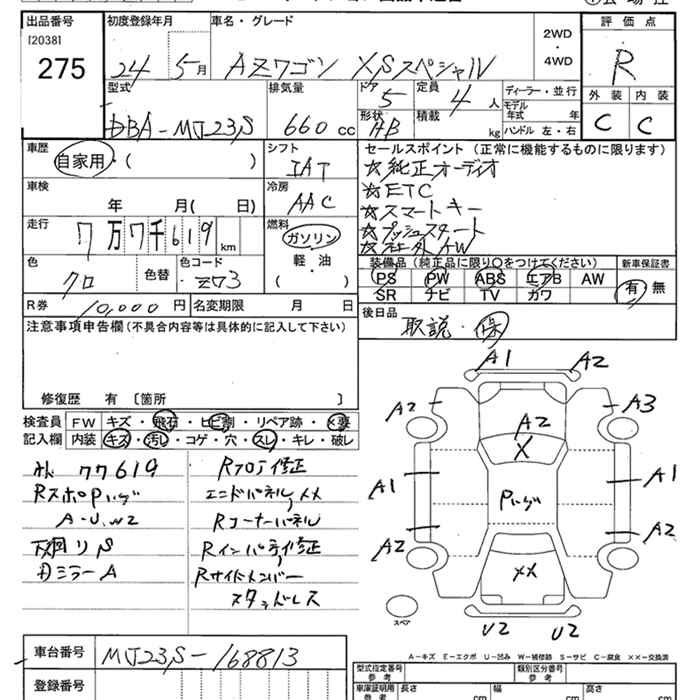 出品番号
[2038]
275
初度登録年月
24 5月
車名・グレード
AZワゴン XSスペシャル
2WD
・
4WD
評価点
R
外装 内装
C C
型式
DBA-MJ23S
排気量
660 cc
ドア
5
形状
HB
定員
4 人
積載
kg
ディーラー・並行
モデル年式 年
ハンドル 左・右
車歴
自家用・( )
シフト
IAT
車検
年 月( 日)
冷房
AAC
走行
7万7千619 km
燃料
ガソリン
軽・油
( )
色
クロ
色替
色コード
ZJ3
R券 10,000 円
名変期限 月 日
セールスポイント (正常に機能するものに限ります)
☆純正オーディオ
☆ETC
☆スマートキー
☆プッシュスタート
☆社外AW
装備品 (純正品に限り○をつけてください)
PS PW ABS エアB AW
SR ナビ TV カワ
新車保証書
有 無
後日品
取説・保
注意事項申告欄 (不具合内容等は具体的に記入して下さい)
修復歴 有 〔箇所 〕
検査員記入欄
FW キズ・飛石・ヒビ割・リペア跡・×要
内装 キズ・汚レ・コゲ・穴・スレ・キレ・破レ
77619
RスポOPハゲ
A-U.W2
下廻りS
ミラーA
Rフロア修正
エンドパネル××
Rコーナーパネル
Rインパネ修正
Rサイドメンバー
スタッドレス
A1 A2
A2 A2 A3
X
A1 Pハゲ A1
A2 A2
××
スペア
U2 U2
A-キズ E-エクボ U-凹み W-補修跡 S-サビ C-腐食 ××-交換済
車台番号
MJ23S-168813
登録番号
型式指定番号
参考
類別区分番号
参考
車庫証明用
参考
長さ cm
幅 cm
高さ cm